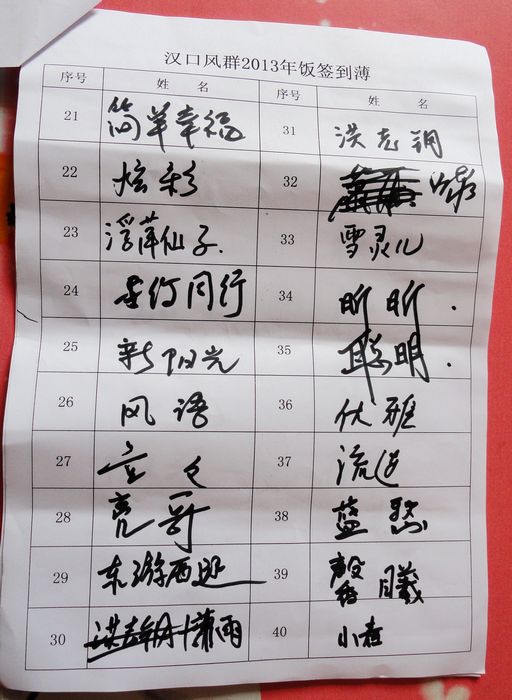 汉口风群2013年饭签到薄
序号 姓 名 序号 姓 名
21 简单幸福 31 洪克钢
22 炫彩 32
23 浮萍仙子. 33 雪灵儿
24 同行 34 昕昕.
25 新阳光 35 聪明.
26 风语 36 优雅
27 37
28 亮哥 38 蓝
29 东游西逛 39 馨曦
30 潇雨 40 小在